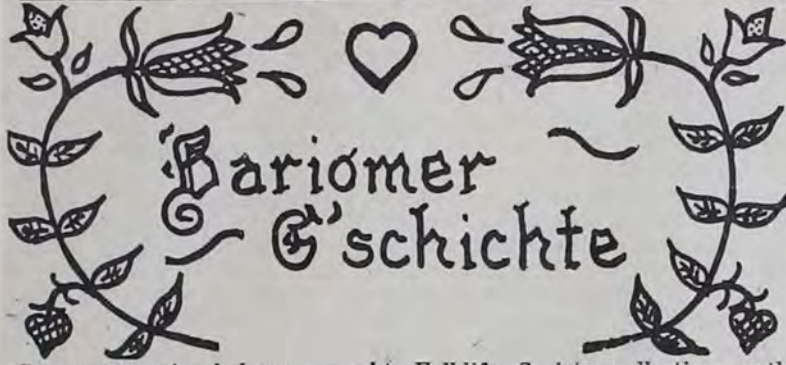 Bariomer
G'schichte